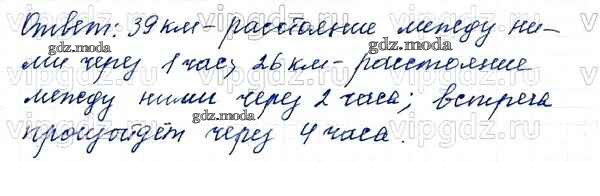 Ответ: 39 км - расстояние между ни-
ми через 1 час; 26 км - расстояние
между ними через 2 часа; встреча
произойдёт через 4 часа.
gdz.moda
gdz.moda
gdz.moda
gdz.moda
vipgdz.ru
vipgdz.ru
vipgdz.ru
vipgdz.ru